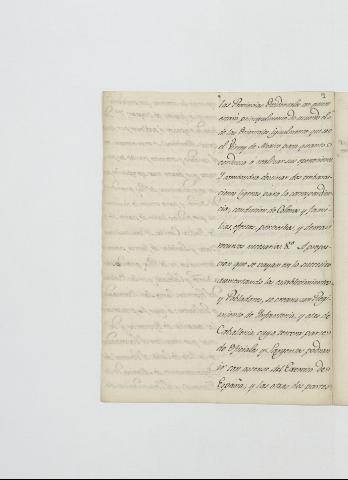 2
las Provincias Occidentales con quien
estará principalmente de acuerdo el
de las Orientales, igualmente que con
el Virrey de Mexico para quanto
conduzca a realizar sus
7. armandose desuerte dos embarca-
ciones ligeras para la correspondien-
cia, conducion de Colonos y fami-
lias, efectos, pertrechos, y demas
necesarias. 8.º A propor-
cion que se vayan en lo succesivo
aumentando los establecimientos
y Pobladores, se creará un Regi-
miento de Infanteria, y otro de
Caballeria cuya tercera parte
de Oficiales y Sargentos podran
ir con ascenso del Exercito de
España, y las otras dos partes